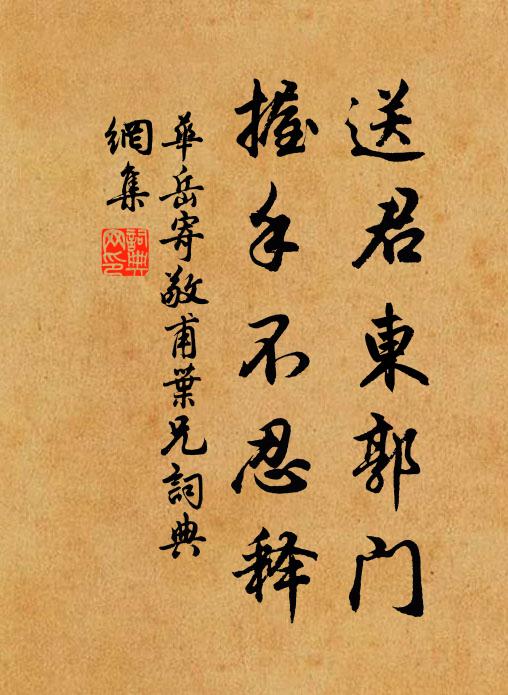 送君東郭门
握手不忍释
華岳寄敬甫葉兄詞典
網集
詞典
网印